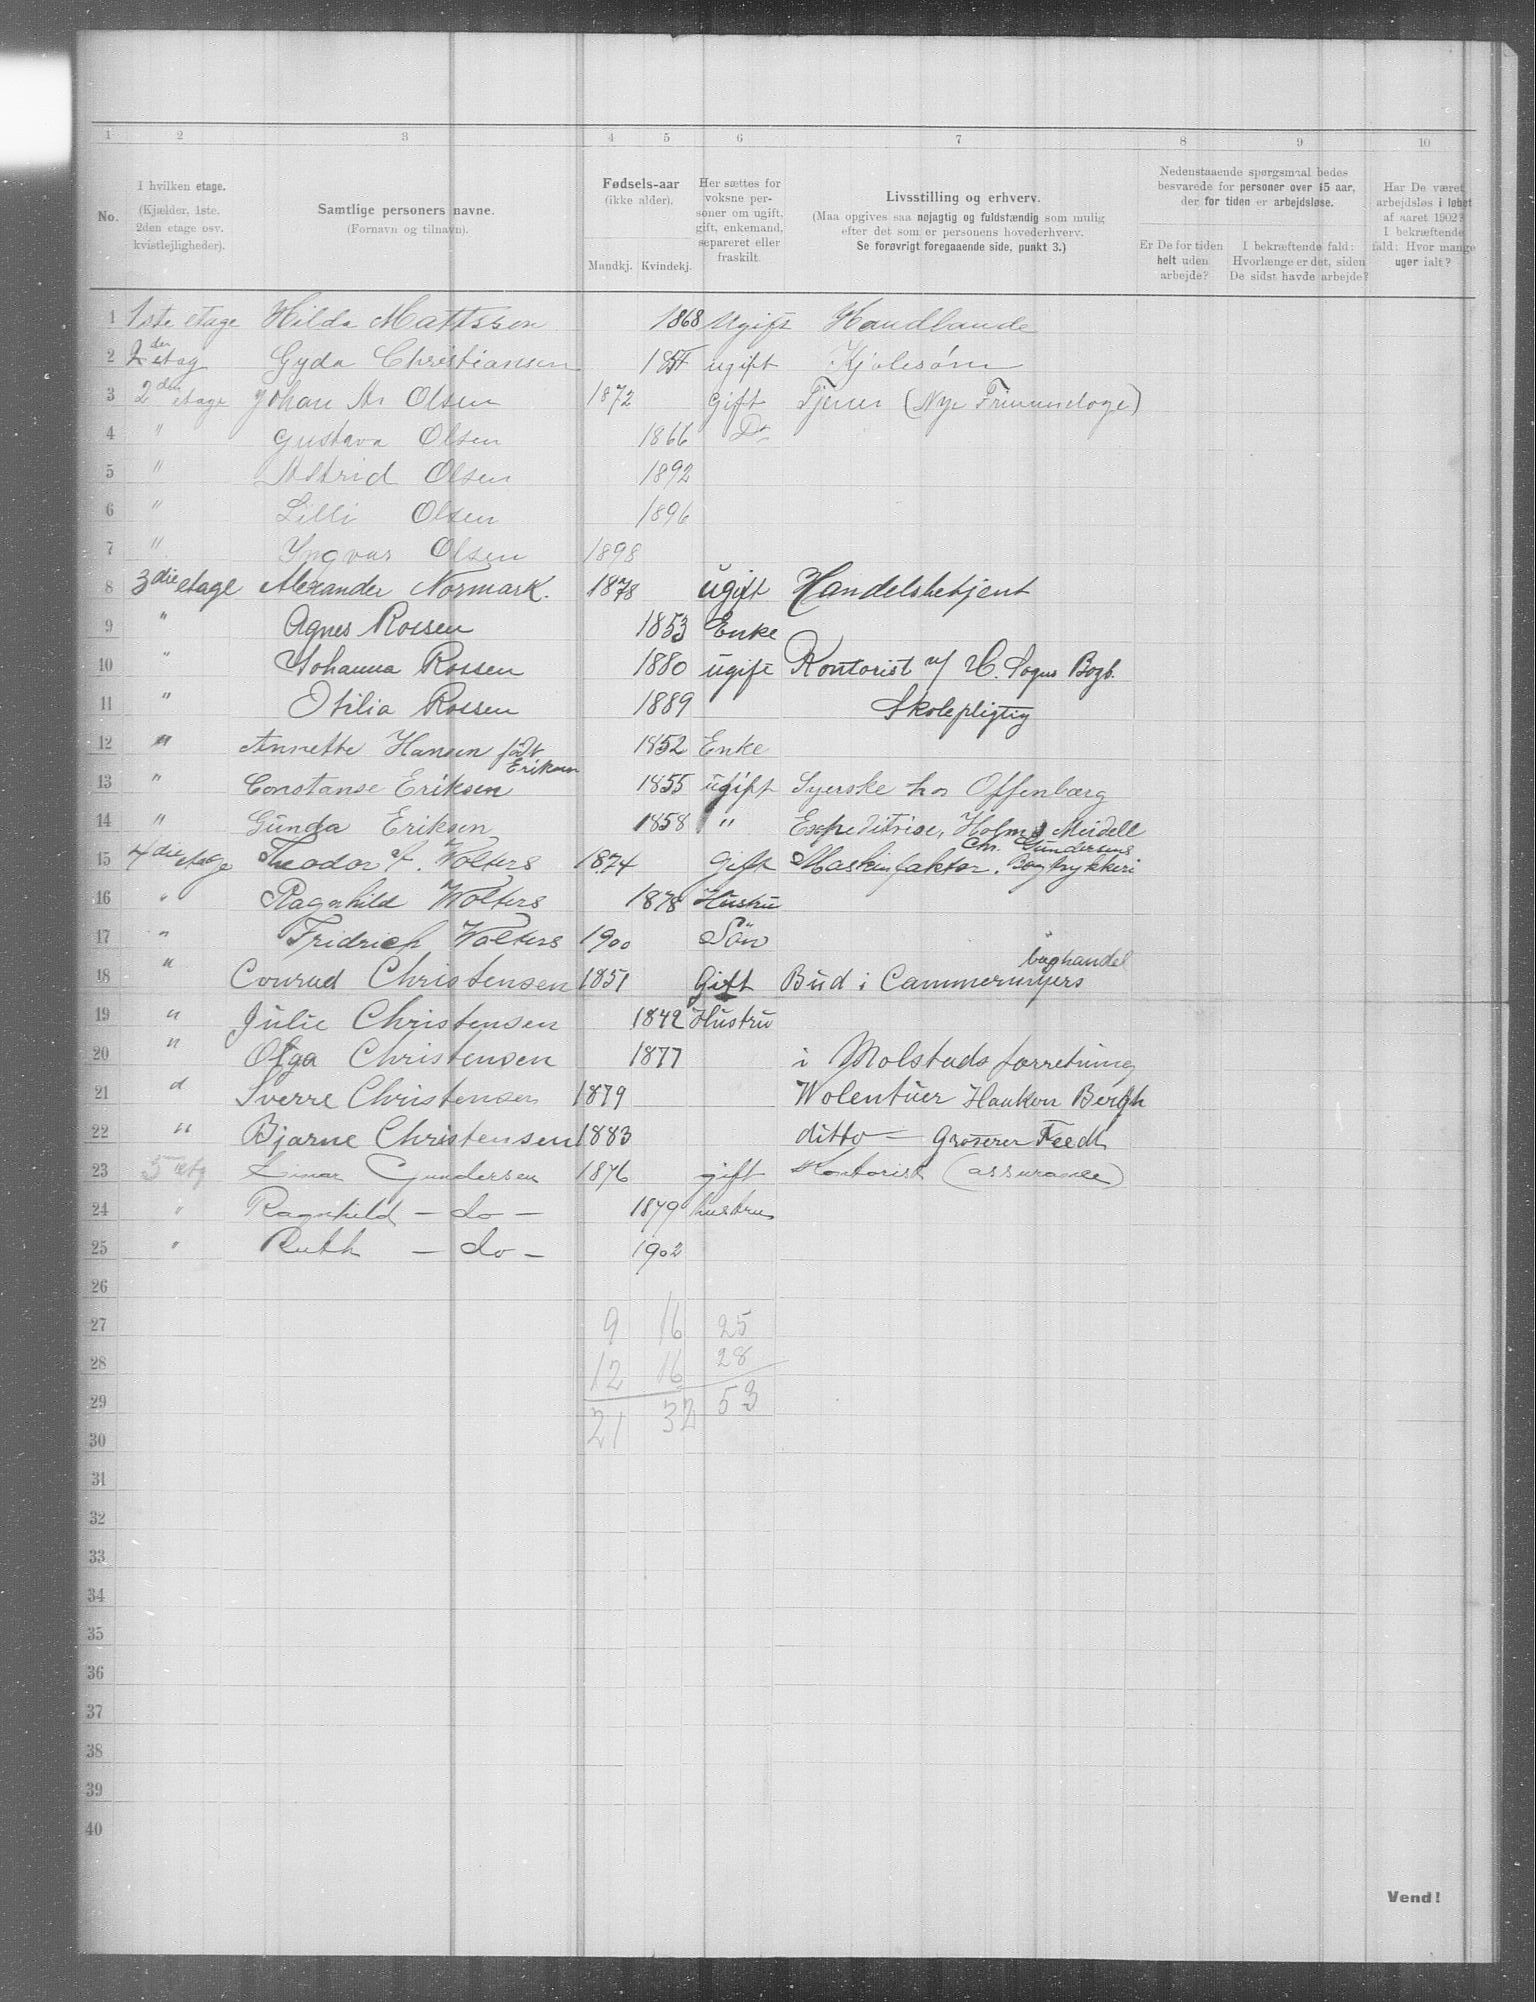 1 2 3 4 5 6 7 8 9 10
No. I hvilken etage. (Kjælder, 1ste. 2den etage osv. kvistlejligheder). Samtlige personers navne. (Fornavn og tilnavn). Fødsels-aar (ikke alder). Mandkj. Kvindekj. Her sættes for voksne personer om ugift, gift, enkemand, separeret eller fraskilt. Livsstilling og erhverv. (Maa opgives saa nøjagtig og fuldstændig som mulig efter det som er personens hovederhverv. Se forøvrigt foregaaende side, punkt 3.) Nedenstaaende spørgsmaal bedes besvarede for personer over 15 aar, der for tiden er arbejdsløse. Er De for tiden helt uden arbejde? I bekræftende fald: Hvorlænge er det, siden De sidst havde arbejde? Har De været arbejdsløs i løbet af aaret 1902? I bekræftende fald: Hvor mange uger ialt?
1 1ste etage Hilda Mattsson 1868 Ugift Handlande
2 2den etag Gyda Christiansen ugift Kjolesøm
3 2den etage Johan Olsen 1872 Gift Tjener (Nye Frimurerloge)
4 " Gustava Olsen 1866 Do
5 " Astrid Olsen 1892
6 " Lilli Olsen 1896
7 " Yngvar Olsen 1898
8 3die etage Alexander Normark. 1878 ugift Handelsbetjent
9 " Agnes Rossen 1853 Enke
10 " Johanna Rossen 1880 ugift Kontorist v/ H. Sogns Bogb.
11 " Otilia Rossen 1889 Skolepligtig
12 " Annette Hansen født Eriksen 1852 Enke
13 " Constanse Eriksen 1855 ugift Syerske hos Offenbarg
14 " Gunda Eriksen 1858 " Expeditrise, Holm &
15 4die etage Theodor F. Wolters 1874 Gift Maskinfaktor. Chr. Gundersens Bogtrykkeri
16 " Ragnhild Wolters 1878 Hustru
17 " Fridrich Wolters 1900 Søn
18 " Conrad Christensen 1851 Gift Bud i Cammermeyers boghandel
19 " Julie Christensen 1842 Hustru
20 " Olga Christensen 1877 i Molstads forretning
21 d Sverre Christensen 1879 Wolentuer Haakon Bergh
22 " Bjarne Christensen 1883 ditto — Groserer
23 etg Einar Gundersen 1876 gift Kontorist (assurance)
24 " Ragnhild — do — 1879 hustru
25 " Ruth — do — 1902
26
27 9 16 25
28 12 16 28
29 21 32 53
30
31
32
33
34
35
36
37
38
39
40
Vend!